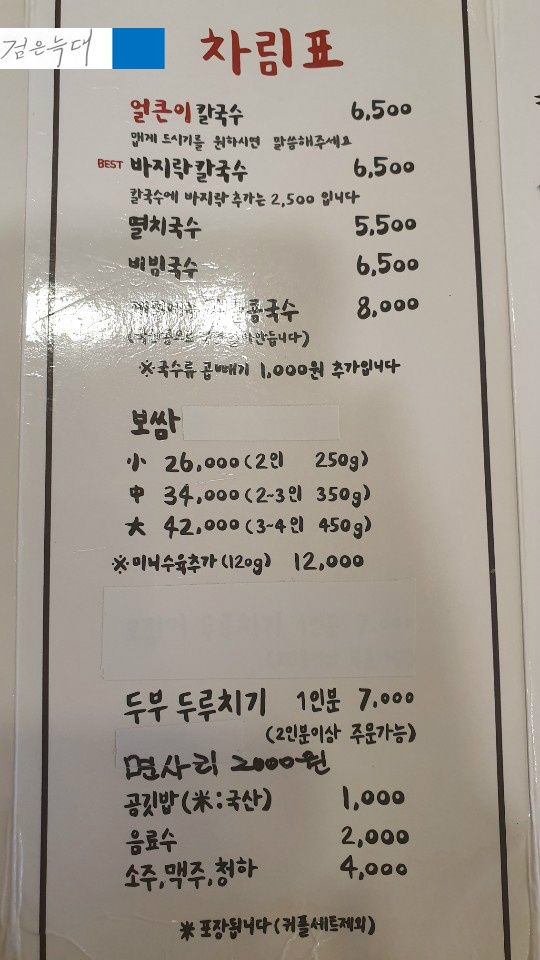 검은늑대
차림표
얼큰이 칼국수 6,500
맵게 드시기를 원하시면 말씀해주세요
BEST 바지락칼국수 6,500
칼국수에 바지락 추가는 2,500 입니다
멸치국수 5,500
비빔국수 6,500
콩국수 8,000
만듭니다)
※국수류 곱빼기 1,000원 추가입니다
보쌈
小 26,000(2인 250g)
中 34,000(2~3인 350g)
大 42,000(3~4인 450g)
※미니수육추가(120g) 12,000
두부 두루치기 1인분 7,000
(2인분이상 주문가능)
면사리 2000원
공깃밥(米:국산) 1,000
음료수 2,000
소주,맥주,청하 4,000
※ 포장됩니다(커플세트제외)